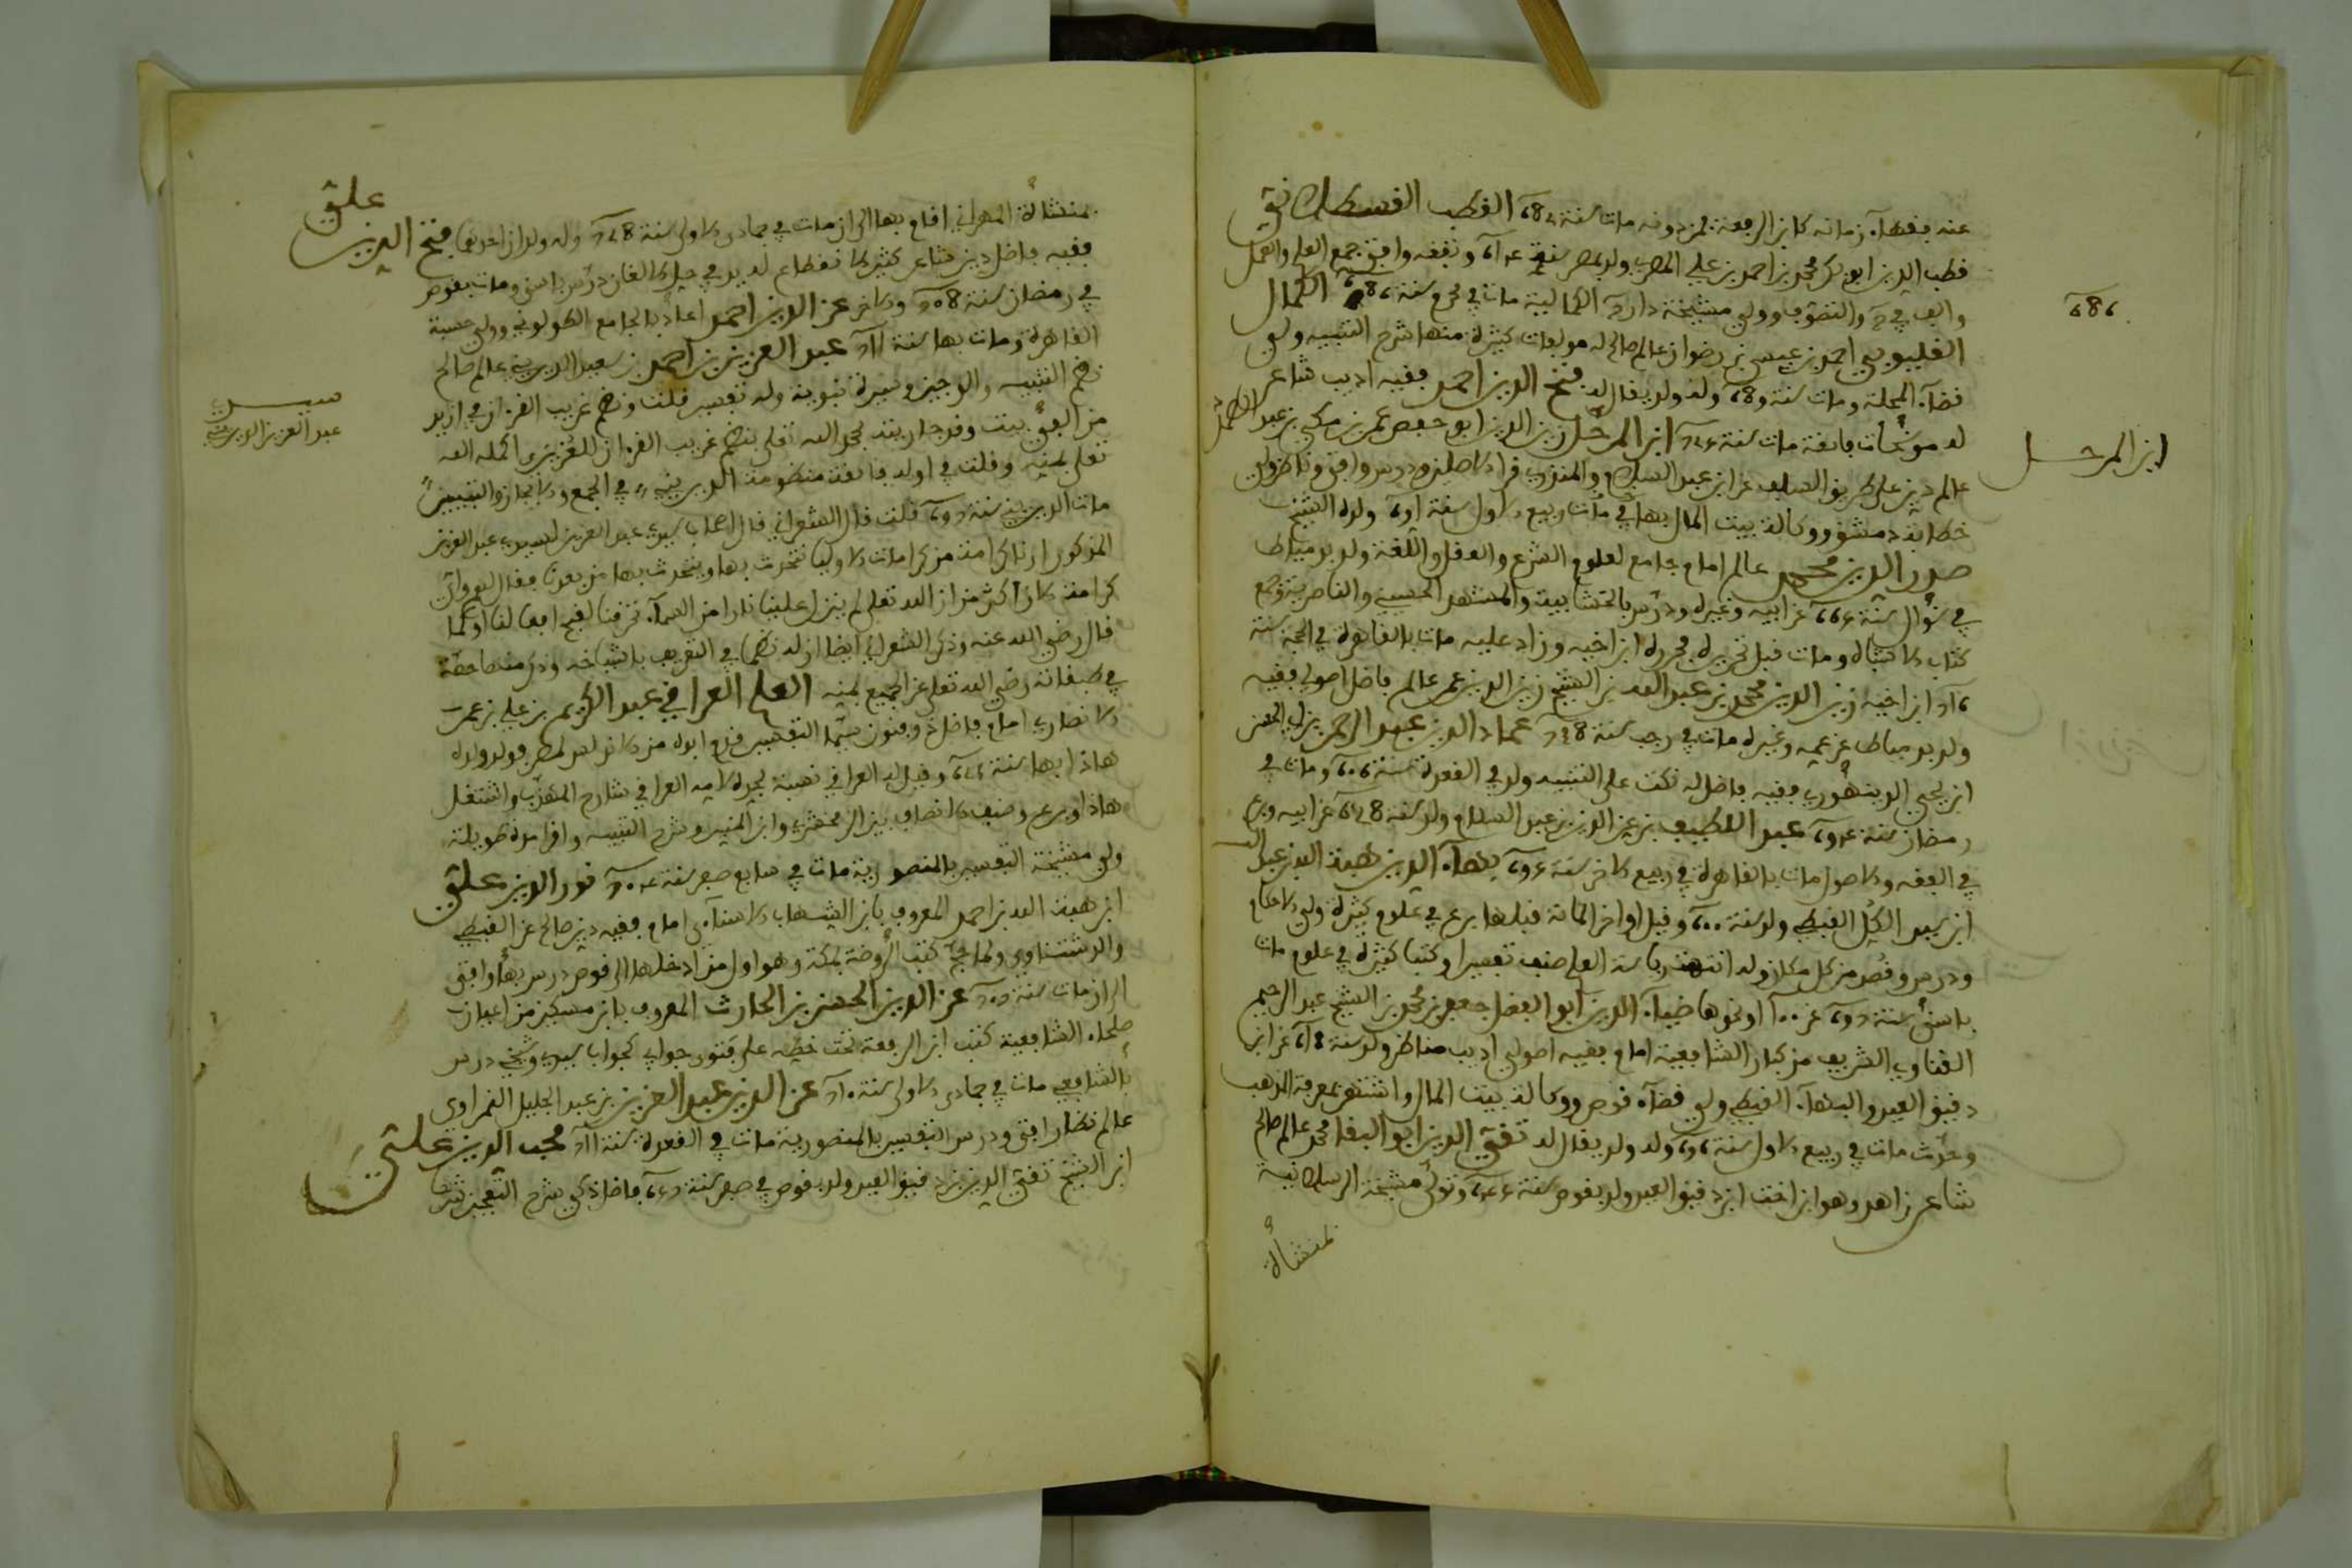 عنه فقهاء زمانه كابن الرفعة فمن دونه مات سنة 682 القطب القسطلاني
قطب الدين ابو بكر محمد بن احمد بن علي المصري ولد بمصر سنة 614 وتفقه وافتى جمع العلم والعمل
والف في والتصوف وولي مشيخة دار الكاملية مات في محرم سنة 686 الكمال
القليوبي احمد بن عيسى بن رضوان عالم صالح له مولفات كثيرة منها شرح التنبيه وولي
قضاء المحلة ومات سنة 689 وله ولد يقال له فتح الدين احمد فقيه اديب شاعر
له موشحات فايقة مات سنة ابن المرحل زين الدين ابو حفص عمر بن مكي بن عبد الصمد
عالم دين على طريق السلف عن ابن عبد السلام والمنذري قرا الاصلين ودرس وافتى وناظر ولي
خطابة دمشق ووكالة بيت المال بها مات في ربيع الاول سنة 691 وولده الشيخ
صدر الدين محمد عالم امام جامع لعلوم الشرع والعقل واللغة ولد بدمياط
في شوال سنة عن ابيه وغيره ودرس بالخشابية والمشهد الحسيني والناصرية وجمع
كتاب الاشباه ومات قبل تحريره فحرره ابن اخيه وزاد عليه مات بالقاهرة في الحجة سنة
716 ابن اخيه زين الدين محمد بن عبد الله بن الشيخ زين الدين عمر عالم فاضل اصولي فقيه
ولد بدمياط عن عمه وغيره مات في رجب سنة 738 عماد الدين عبد الرحمن بن ابي الحسن
ابن يحيى الدمنهوري فقيه فاضل له نكت على التنبيه ولد في القعدة سنة 606 ومات في
رمضان سنة 694 عبد اللطيف بن عز الدين بن عبد السلام ولد سنة 628 عن ابيه وبرع
في الفقه والاصول مات بالقاهرة في ربيع الاخر سنة 695 بهاء الدين هبة الله بن عبد الله
ابن سيد الكل القفطي ولد سنة 600 وقيل اواخر المائة قبلها برع في علوم كثيرة وولي الاحكام
ودرس وقصد من كل مكان وله انتهت رياسة العلم صنف تفسيرا وكتبا كثيرة في علوم مات
باسنى سنة 697 عن 100 او نحوها ضياء الدين ابو الفضل جعفر بن محمد بن الشيخ عبد الرحيم
القناوي الشريف من كبار الشافعية امام فقيه اصولي اديب مناظر ولد سنة 618 عن ابن
دقيق العيد والبهاء القفطي ولي قضاء قوص ووكالة بيت المال واشتهر بمعرفة المذهب
وحدث مات في ربيع الاول سنة 696 وله ولد يقال له تقي الدين ابو البقا محمد عالم صالح
شاعر زاهد وهو ابن اخت ابن دقيق العيد ولد بقوص سنة 645 وتولى مشيخة الرسلانية
بمنشأة
686
ابن المرحل
بمنشأة المهراني اقام بها الى ان مات في جمادى الاولى سنة 728 وله ولدان احدهما فتح الدين علي
فقيه فاضل دين شاعر كثير الانقطاع له يد في حل الالغاز درس باسنى ومات بقوص
في رمضان سنة 708 والاخر عز الدين احمد اعاد بالجامع الطولوني وولي حسبة
القاهرة ومات بها سنة 711 عبد العزيز بن احمد بن سعيد الديريني عالم صالح
نظم التنبيه والوجيز وسيرة نبوية وله تفسير قلت ونظم غريب القرءان في ازيد
من الفي بيت وقد جاريته بحمد الله تعلى بنظم غريب القرءان للعزيزي اكمله الله
تعلى بمنه وقلت في اوله فايقة منظومة الديريني في الجمع والايجاز والتبيين
مات الديريني سنة قلت قال الشعراني قال اصحاب سيدي عبد العزيز لسيدي عبد العزيز
المذكور ارنا كرامة من كرامات الاوليا نتحدث بها ويتحدث بها من بعدنا فقال لهم واي
كرامة اكثر من ان الله تعلى لم ينزل علينا نارا من السماء تحرقنا لقبح افعالنا او كما
قال رضي الله عنه وذكر الشعراني ايضا ان له نظما في التعريف باشياخه وذكر منه طرفا
في طبقاته رضي الله تعلى عن الجميع بمنه العلم العراقي عبد الكريم بن علي بن عمر
الانصاري امام فاضل ذو فنون سيما التفسير قدم ابوه من الاندلس لمصر فولد ولده
هاذا بها سنة 623 وقيل له العراقي نسبة لجده لامه العراقي شارح المهذب واشتغل
هاذا وبرع وصنف الانصاف بين الزمخشري وابن المنير وشرح التنبيه واقرا مدة طويلة
ولي مشيخة التفسير بالمنصورية مات في سابع صفر سنة 704 نور الدين علي
ابن هبة الله بن احمد المعروف بابن الشهاب الاسناءي امام فقيه دين صالح عن القفطي
والدشناوي ولما حج كتب الروضة بمكة وهو اول من ادخلها الى قوص درس بها وافتى
الى ان مات سنة 707 عز الدين الحسن بن الحارث المعروف بابن مسكين من اعيان
صلحاء الشافعية كتب ابن الرفعة تحت خطه على فتوى جوابي كجواب سيدي وشيخي درس
بالشافعي مات في جمادى الاولى سنة 710 عز الدين عبد العزيز بن عبد الجليل النمراوي
عالم نظار افتى ودرس التفسير بالمنصورية مات في القعدة سنة 711 محب الدين علي
ابن الشيخ تقي الدين بن دقيق العيد ولد بقوص في صفر سنة 657 فاضل ذكي شرح التعجيز شرحا
سيدي
عبد العزيز الديريني